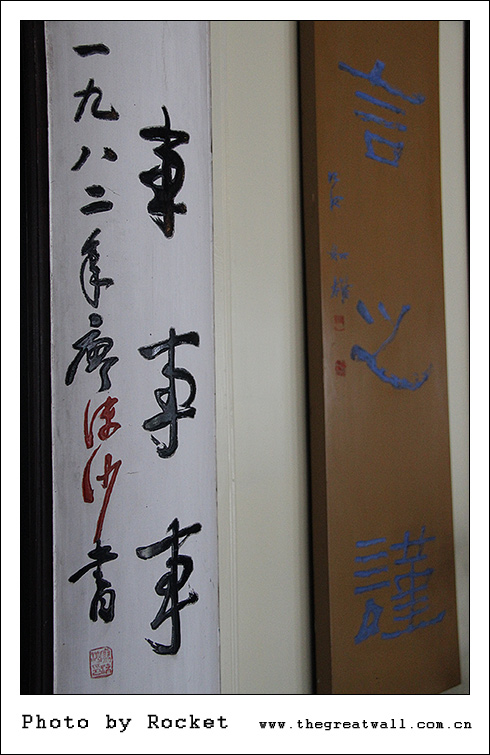 事事事
一九八二年廖沫沙書
信义謹
Photo by Rocket www.thegreatwall.com.cn